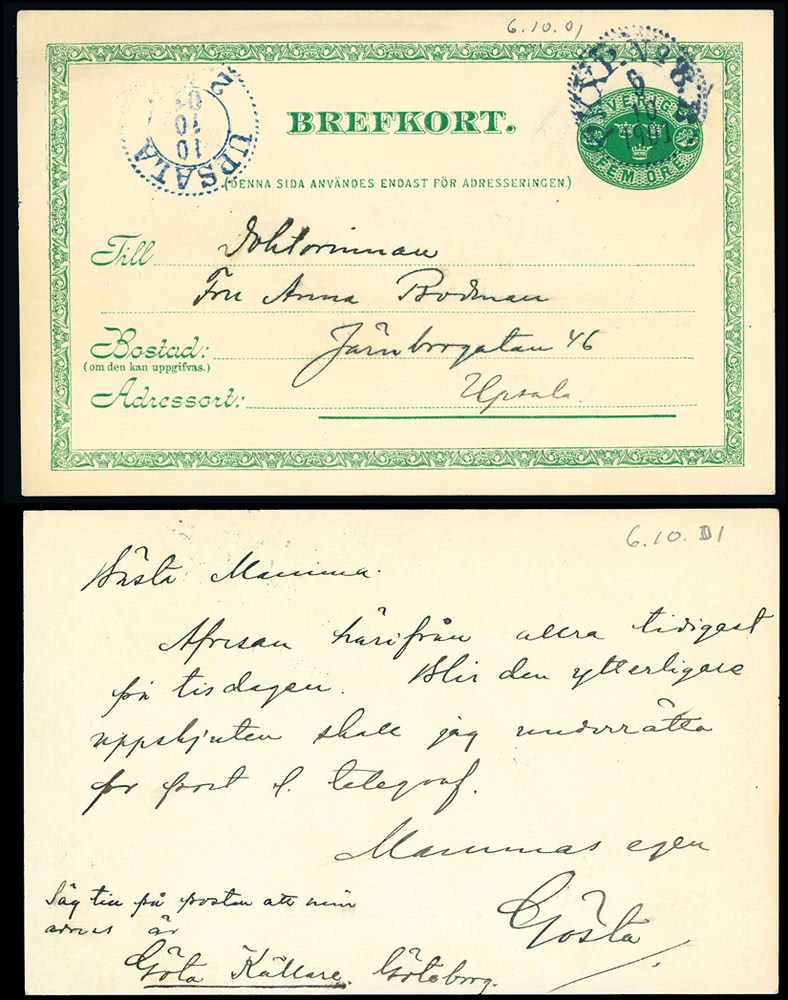 6.10.01
BREFKORT.
(DENNA SIDA ANVÄNDES ENDAST FÖR ADRESSERINGEN.)
UPSALA
10
10
01
PXP. No 8.
6
10
1901
SVERIGE
FEM ÖRE
Till Doktorinnan
Fru Anna Bodman
Bostad: Järnbrogatan 46
(om den kan uppgifvas.)
Adressort: Upsala
6.10.01
Bästa Mamma.
Afresan härifrån allra tidigast
på tisdagen. Blir den ytterligare
uppskjuten skall jag underrätta
pr post l. telegraf.
Mammas egen
Gösta
Säg till på posten att min
adress är
Göta Källare, Göteborg.